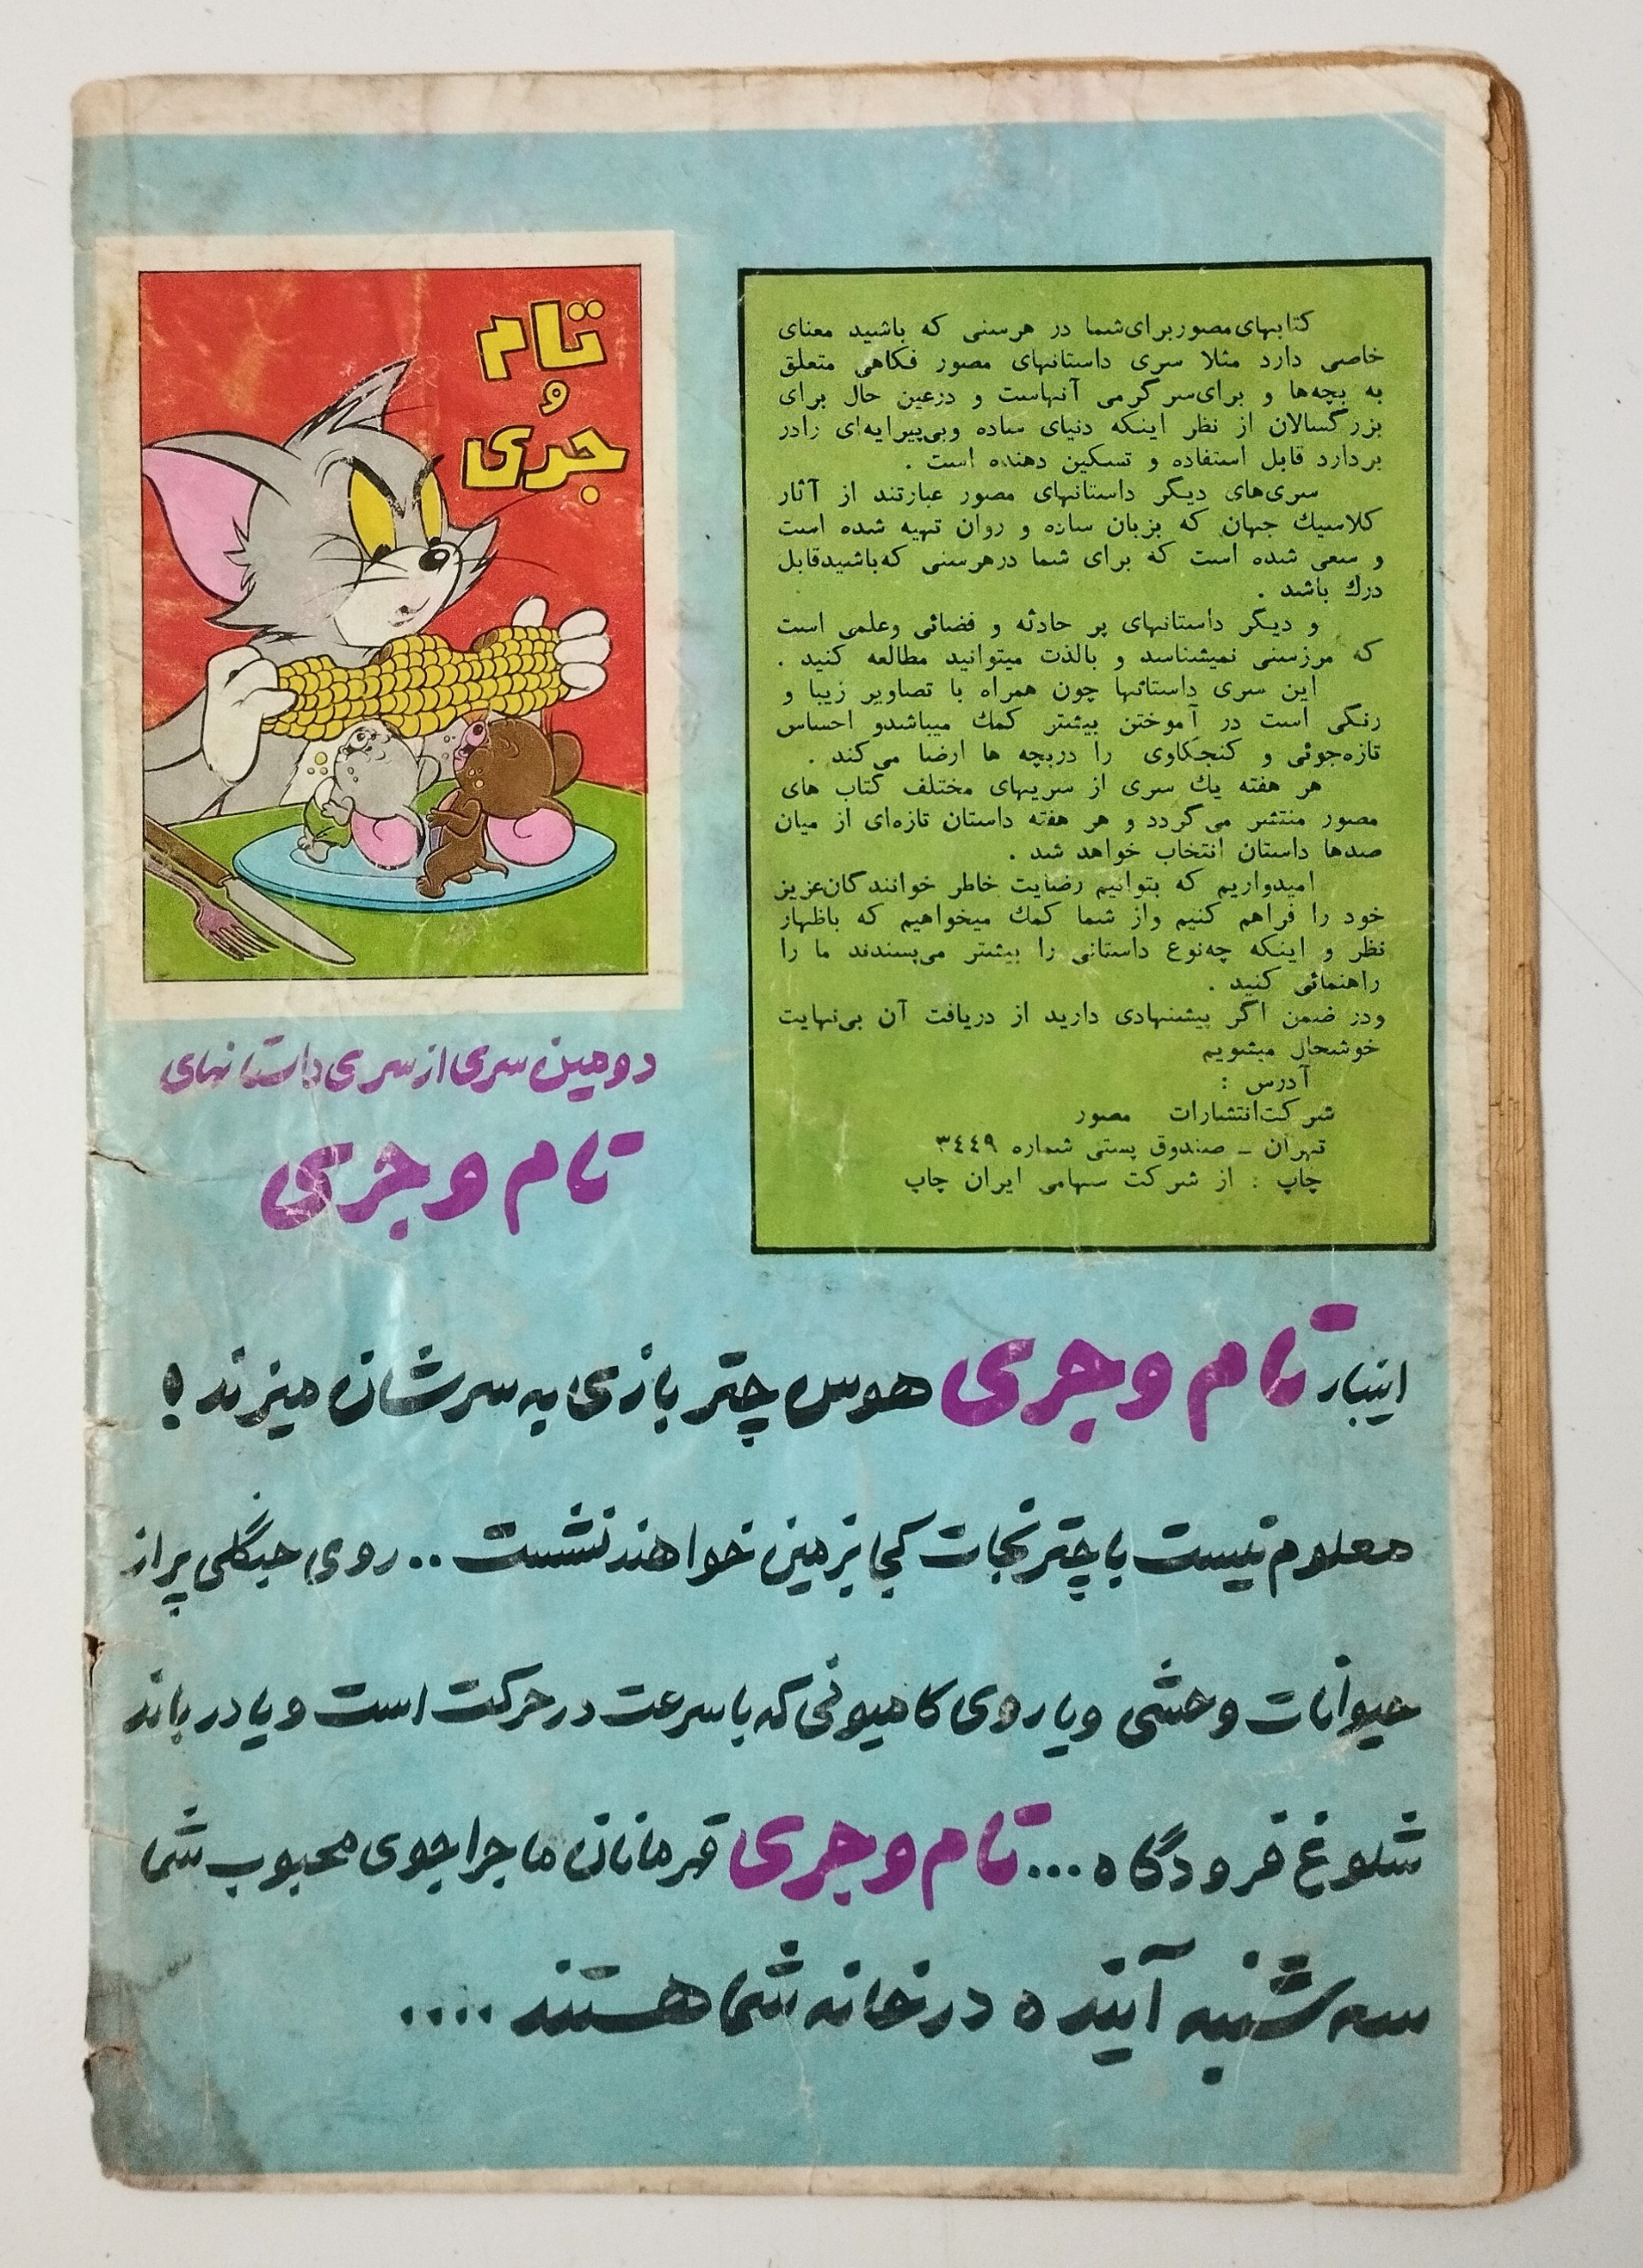 کتابهای مصور برای شما در هر سنی که باشید معنای
خاصی دارد مثلا سری داستانهای مصور فکاهی متعلق
به بچه‌ها و برای سرگرمی آنهاست و درعین حال برای
بزرگسالان از نظر اینکه دنیای ساده وبی‌پیرایه‌ای رادر
بردارد قابل استفاده و تسکین دهنده است .
سری‌های دیگر داستانهای مصور عبارتند از آثار
کلاسیک جهان که بزبان ساده و روان تهیه شده است
و سعی شده است که برای شما درهرسنی که‌باشیدقابل
درک باشد .
و دیگر داستانهای پر حادثه و فضائی وعلمی است
که مرزسنی نمیشناسد و بالذت میتوانید مطالعه کنید .
این سری داستانها چون همراه با تصاویر زیبا و
رنگی است در آموختن بیشتر کمک میباشدو احساس
تازه‌جوئی و کنجکاوی را دربچه ها ارضا می‌کند .
هر هفته یک سری از سریهای مختلف کتاب های
مصور منتشر می‌گردد و هر هفته داستان تازه‌ای از میان
صدها داستان انتخاب خواهد شد .
امیدواریم که بتوانیم رضایت خاطر خوانندگان‌عزیز
خود را فراهم کنیم واز شما کمک میخواهیم که باظهار
نظر و اینکه چه‌نوع داستانی را بیشتر می‌پسندند ما را
راهنمائی کنید .
ودر ضمن اگر پیشنهادی دارید از دریافت آن بی‌نهایت
خوشحال میشویم
آدرس :
شرکت‌انتشارات مصور
تهران ـ صندوق پستی شماره ۳٤٤۹
چاپ : از شرکت سهامی ایران چاپ
تام
و
جری
دومین سری از سری داستانهای
تام و جری
اینبار تام و جری هوس چتر بازی به سرشان میزند !
معلوم نیست با چتر نجات کجا بزمین خواهند نشست .. روی جنگلی پر از
حیوانات وحشی ویا روی کامیونی که با سرعت در حرکت است و یا در باند
شلوغ فرودگاه ... تام و جری قهرمانان ماجراجوی محبوب شما
سه شنبه آینده در خانه شما هستند ....